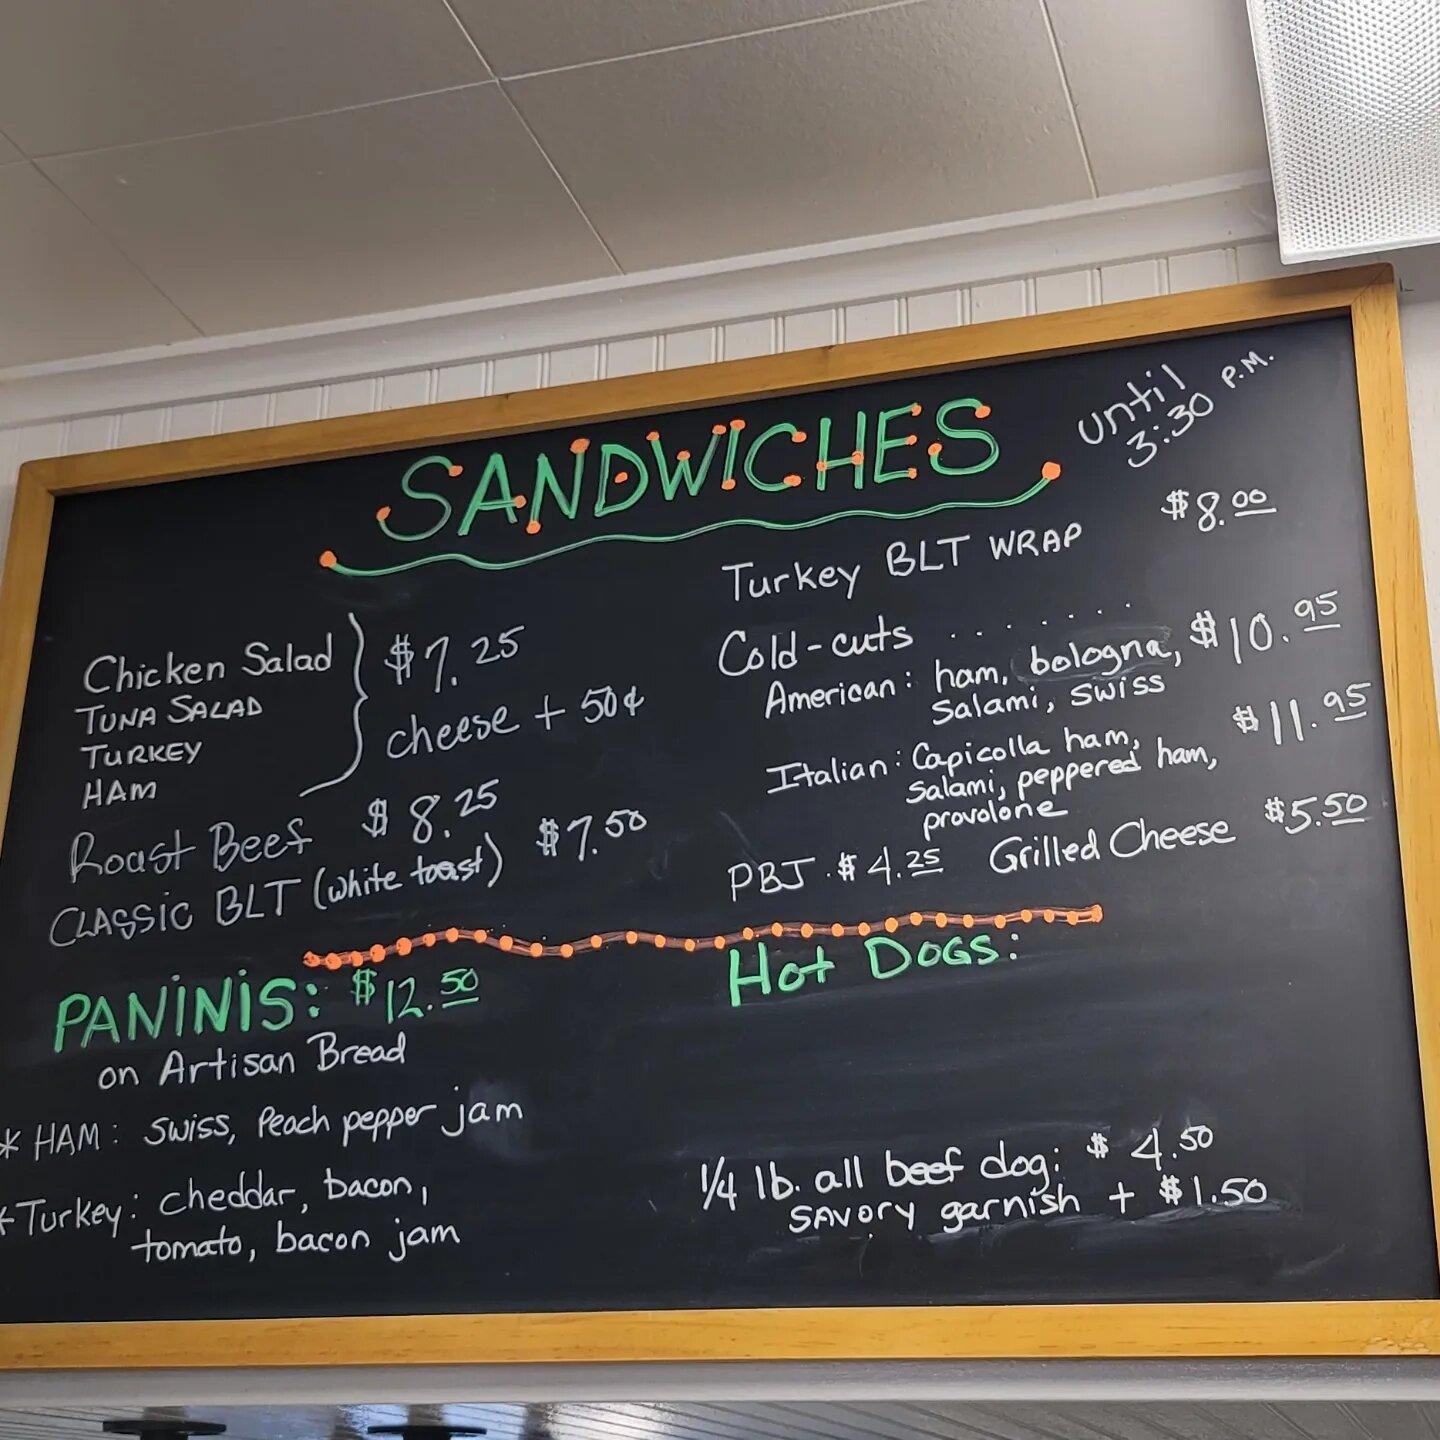 SANDWICHES
until
3:30 P.M.
Chicken Salad
TUNA SALAD
TURKEY
HAM
$7.25
cheese + 50¢
Roast Beef $8.25
CLASSIC BLT (white toast) $7.50
Turkey BLT WRAP $8.00
Cold-cuts . . . . . .
American: ham, bologna, $10.95
Salami, swiss
Italian: Capicolla ham, $11.95
Salami, peppered ham,
provolone
PBJ . $4.25 Grilled Cheese $5.50
PANINIS: $12.50
on Artisan Bread
* HAM: swiss, Peach pepper jam
* Turkey: cheddar, bacon,
tomato, bacon jam
Hot DOGS:
1/4 lb. all beef dog: $4.50
SAVORY garnish + $1.50